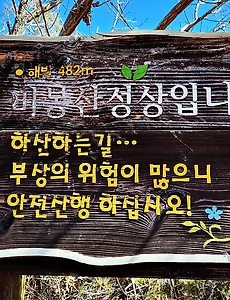 해발 482m
비봉산 정상입니
하산하는길...
부상의 위험이 많으니
안전산행 하십시오!